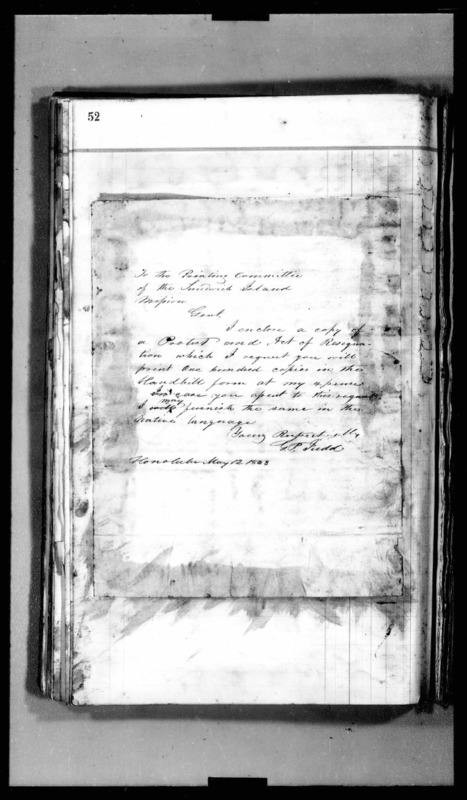 52
To the Printing Committee
of the Sandwich Island
Mission
Gent.
I enclose a copy of
a Protest and Act of Resigna-
tion which I request you will
print One hundred copies in the
Handbill form at my expense
In case you assent to this request
I may furnish the same in the
native language
Yours Respectfully
G.P. Judd
Honolulu May 12 1843